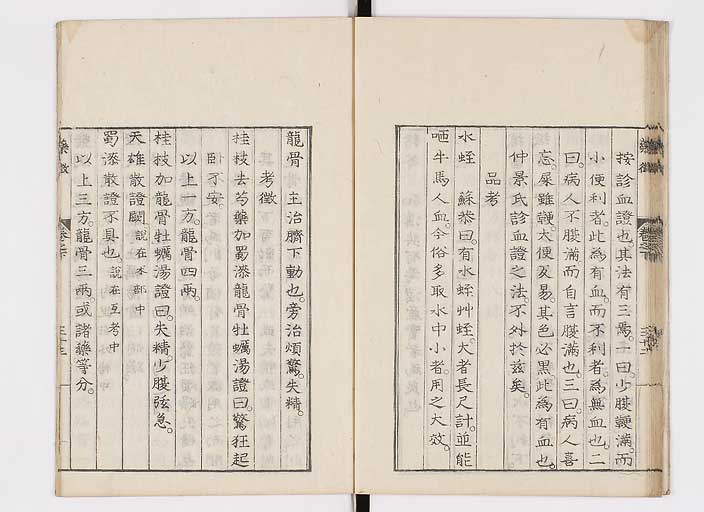 按診血證也其法有三焉一曰少腹鞕滿。而
小便利者。此為有血。而不利者。為無血也。二
曰。病人不腹滿而自言腹滿也。三曰。病人喜
忘。屎雖鞕。大便反易。其色必黑。此為有血也。
仲景氏診血證之法。不外於茲矣。
品考
水蛭 蘇恭曰。有水蛭艸蛭。大者長尺計。並能
咂牛馬人血。今俗多取水中小者。用之大效。
龍骨 主治臍下動也。旁治煩驚。失精。
考徵
桂枝去芍藥加蜀漆龍骨牡蠣湯證曰。驚狂起
臥不安
以上一方。龍骨四兩。
桂枝加龍骨牡蠣湯證曰。失精。少腹弦急。
天雄散證闕 說在朮部中
蜀漆散證不具也。說在互考中
以上三方。龍骨三兩。或諸藥等分。
藥徵 卷下